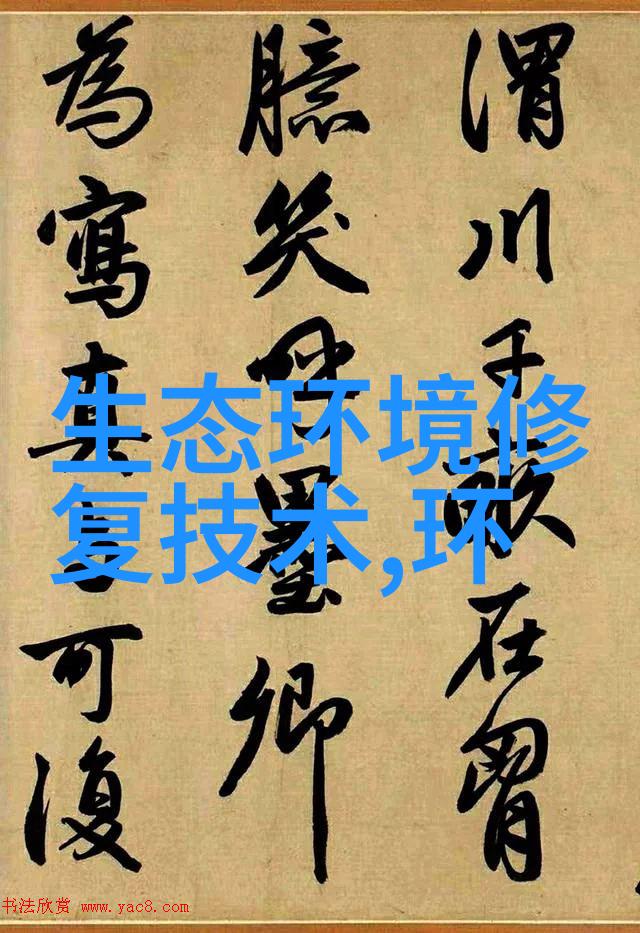 渭川千畝在胷
臆笑呼墨卿
為寫真与可復
生态环境修
复技术,环
书法欣赏 www.yac8.com